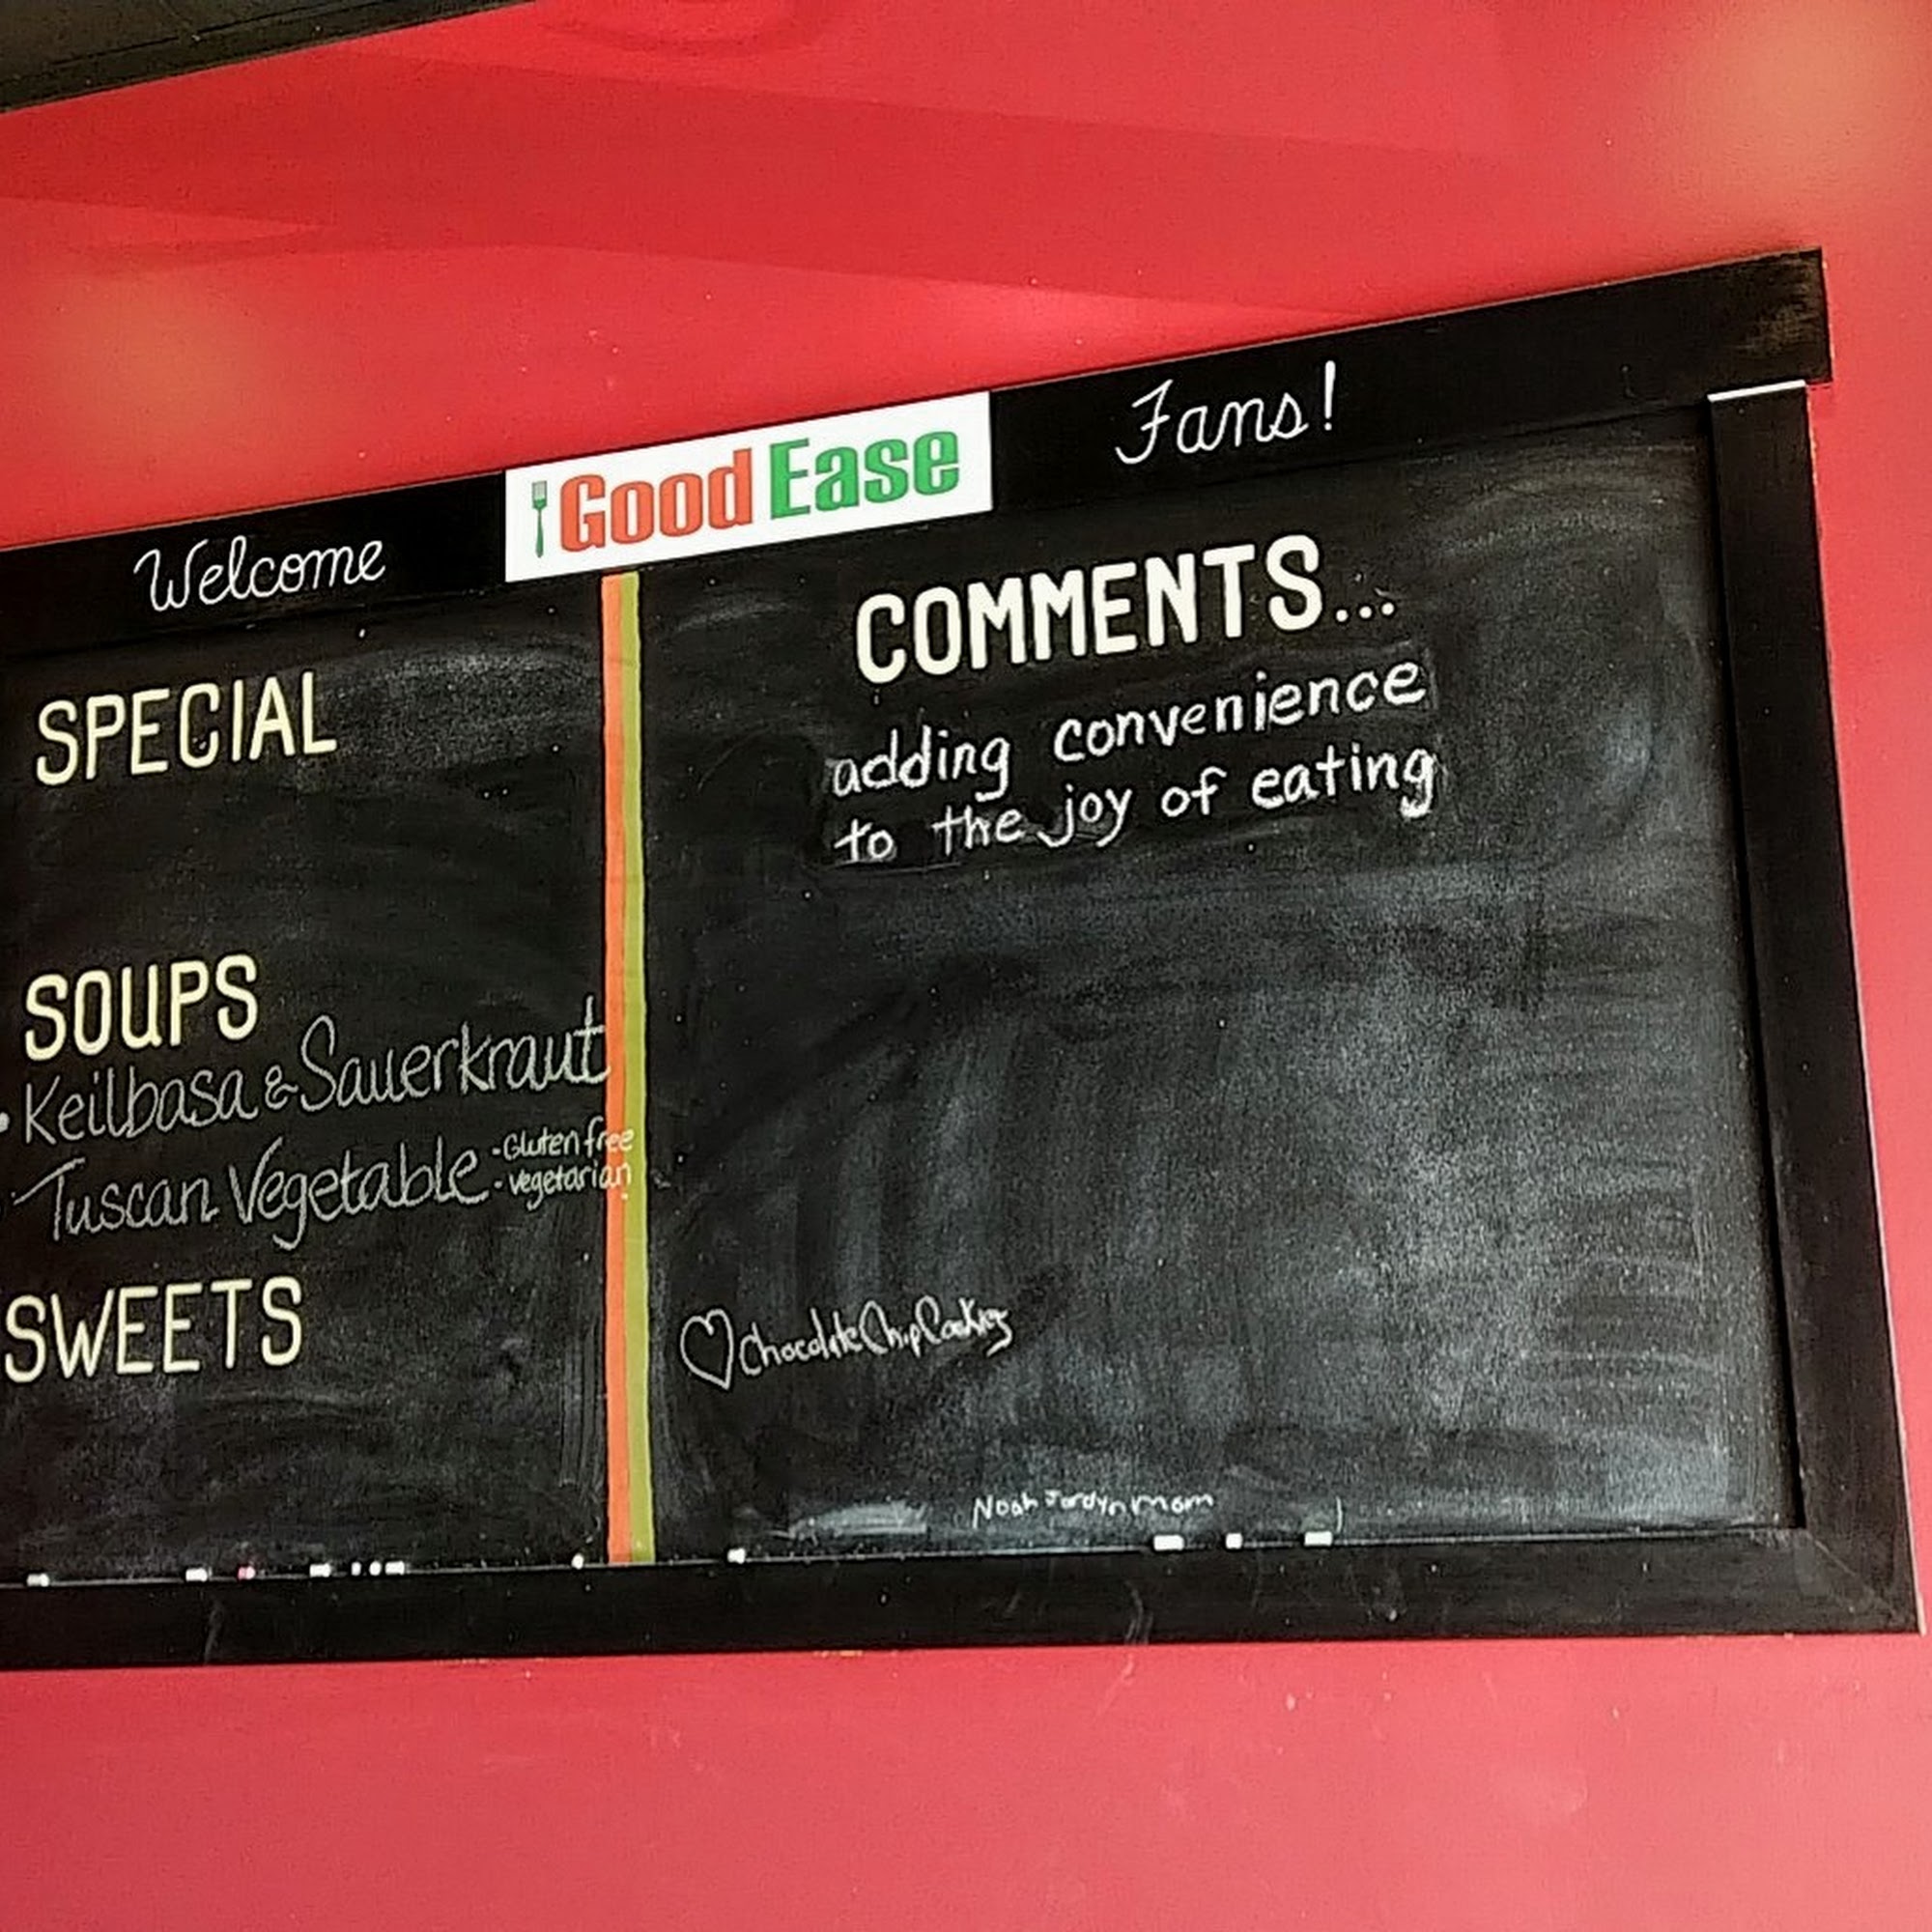 Welcome Good Ease Fans!
SPECIAL
SOUPS
• Keilbasa & Sauerkraut
• Tuscan Vegetable - Gluten free
- vegetarian
SWEETS
COMMENTS...
adding convenience
to the joy of eating
♡ Chocolate Chip Cookies
Noah Jordyn Mom